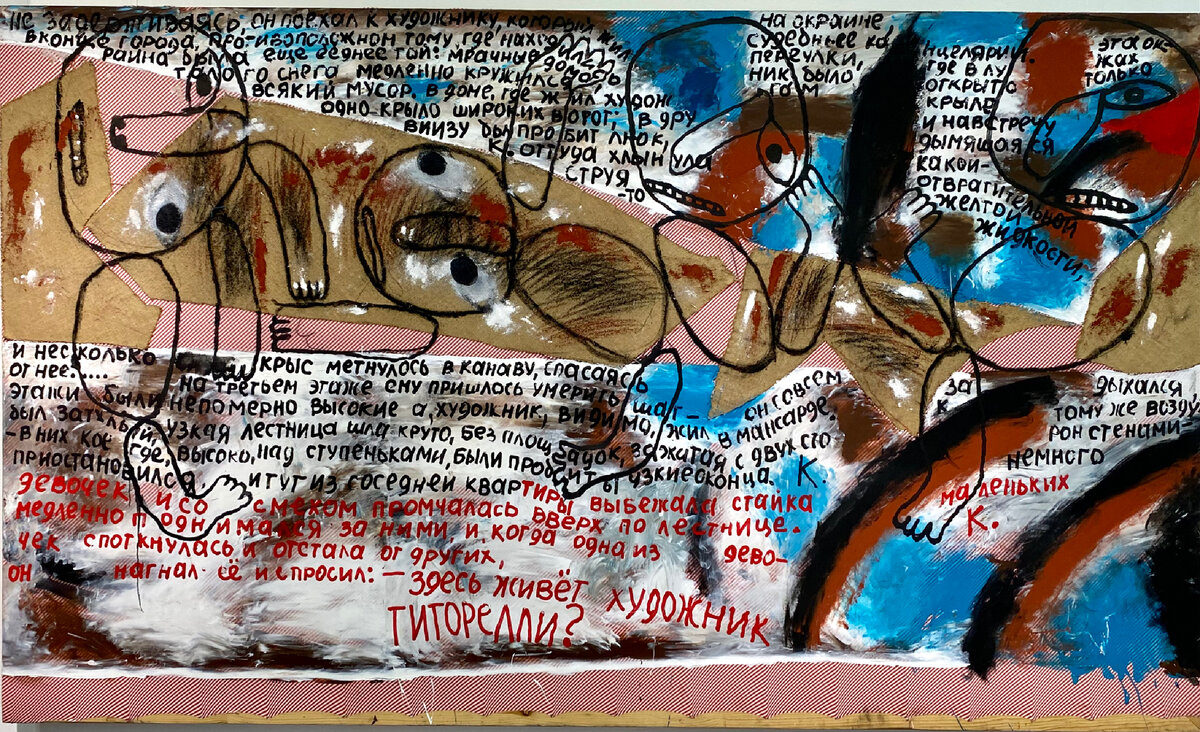 не задерживаясь, он поехал к художнику, который жил на окраине,
в конце города, противоположном тому, где находились судебные канцелярии. эта ок-
раина была еще беднее той: мрачные дома, переулки, где в лужах
талого снега медленно кружился ник было открыто только
всякий мусор. в доме, где жил худож гом крыло
одно крыло широких ворот; в дру и навстречу
внизу был пробит люк, дымящаяся
К. оттуда хлынула какой-
струя отвратительной
-то желтой
жидкости,
и несколько крыс метнулось в канаву, спасаясь
от неё.... на третьем этаже ему пришлось умерить шаг- он совсем задыхался
этажи были непомерно высокие а, художник, видимо, жил в мансарде, К тому же воздух
был затхлый, узкая лестница шла круто, без площадок, зажатая с двух сторон стенами-
-в них кое где, высоко, над ступеньками, были пробиты узкие оконца. К. немного
приостановился. и тут из соседней квартиры выбежала стайка маленьких
девочек и со смехом промчалась вверх по лестнице. К.
медленно поднимался за ними и, когда одна из дево-
чек споткнулась и отстала от других,
он нагнал её и спросил: — здесь живёт художник
ТИТОРЕЛЛИ?